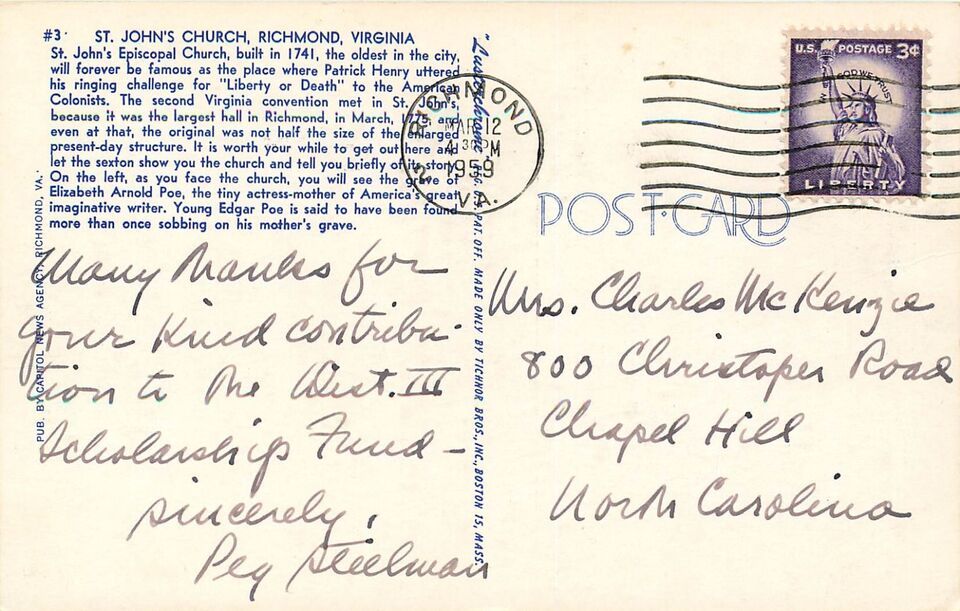 #3 ST. JOHN'S CHURCH, RICHMOND, VIRGINIA
St. John's Episcopal Church, built in 1741, the oldest in the city,
will forever be famous as the place where Patrick Henry uttered
his ringing challenge for "Liberty or Death" to the American
Colonists. The second Virginia convention met in St. John's,
because it was the largest hall in Richmond, in March, 1775 and
even at that, the original was not half the size of the enlarged
present-day structure. It is worth your while to get out here and
let the sexton show you the church and tell you briefly of its story.
On the left, as you face the church, you will see the grave of
Elizabeth Arnold Poe, the tiny actress-mother of America's great
imaginative writer. Young Edgar Poe is said to have been found
more than once sobbing on his mother's grave.
PUB. BY CAPITOL NEWS AGENCY, RICHMOND, VA.
Many thanks for
your kind contribu-
tion to the West. III
Scholarship Fund -
Sincerely,
Peg Steelman
"Lusterchrome" REG. U.S. PAT. OFF. MADE ONLY BY TICHNOR BROS., INC., BOSTON 15, MASS.
RICHMOND
MAR 12
4 30 PM
1959
VA.
2
U.S. POSTAGE 3¢
IN GOD WE TRUST
LIBERTY
POST CARD
Mrs. Charles McKenzie
800 Christoper Road
Chapel Hill
North Carolina